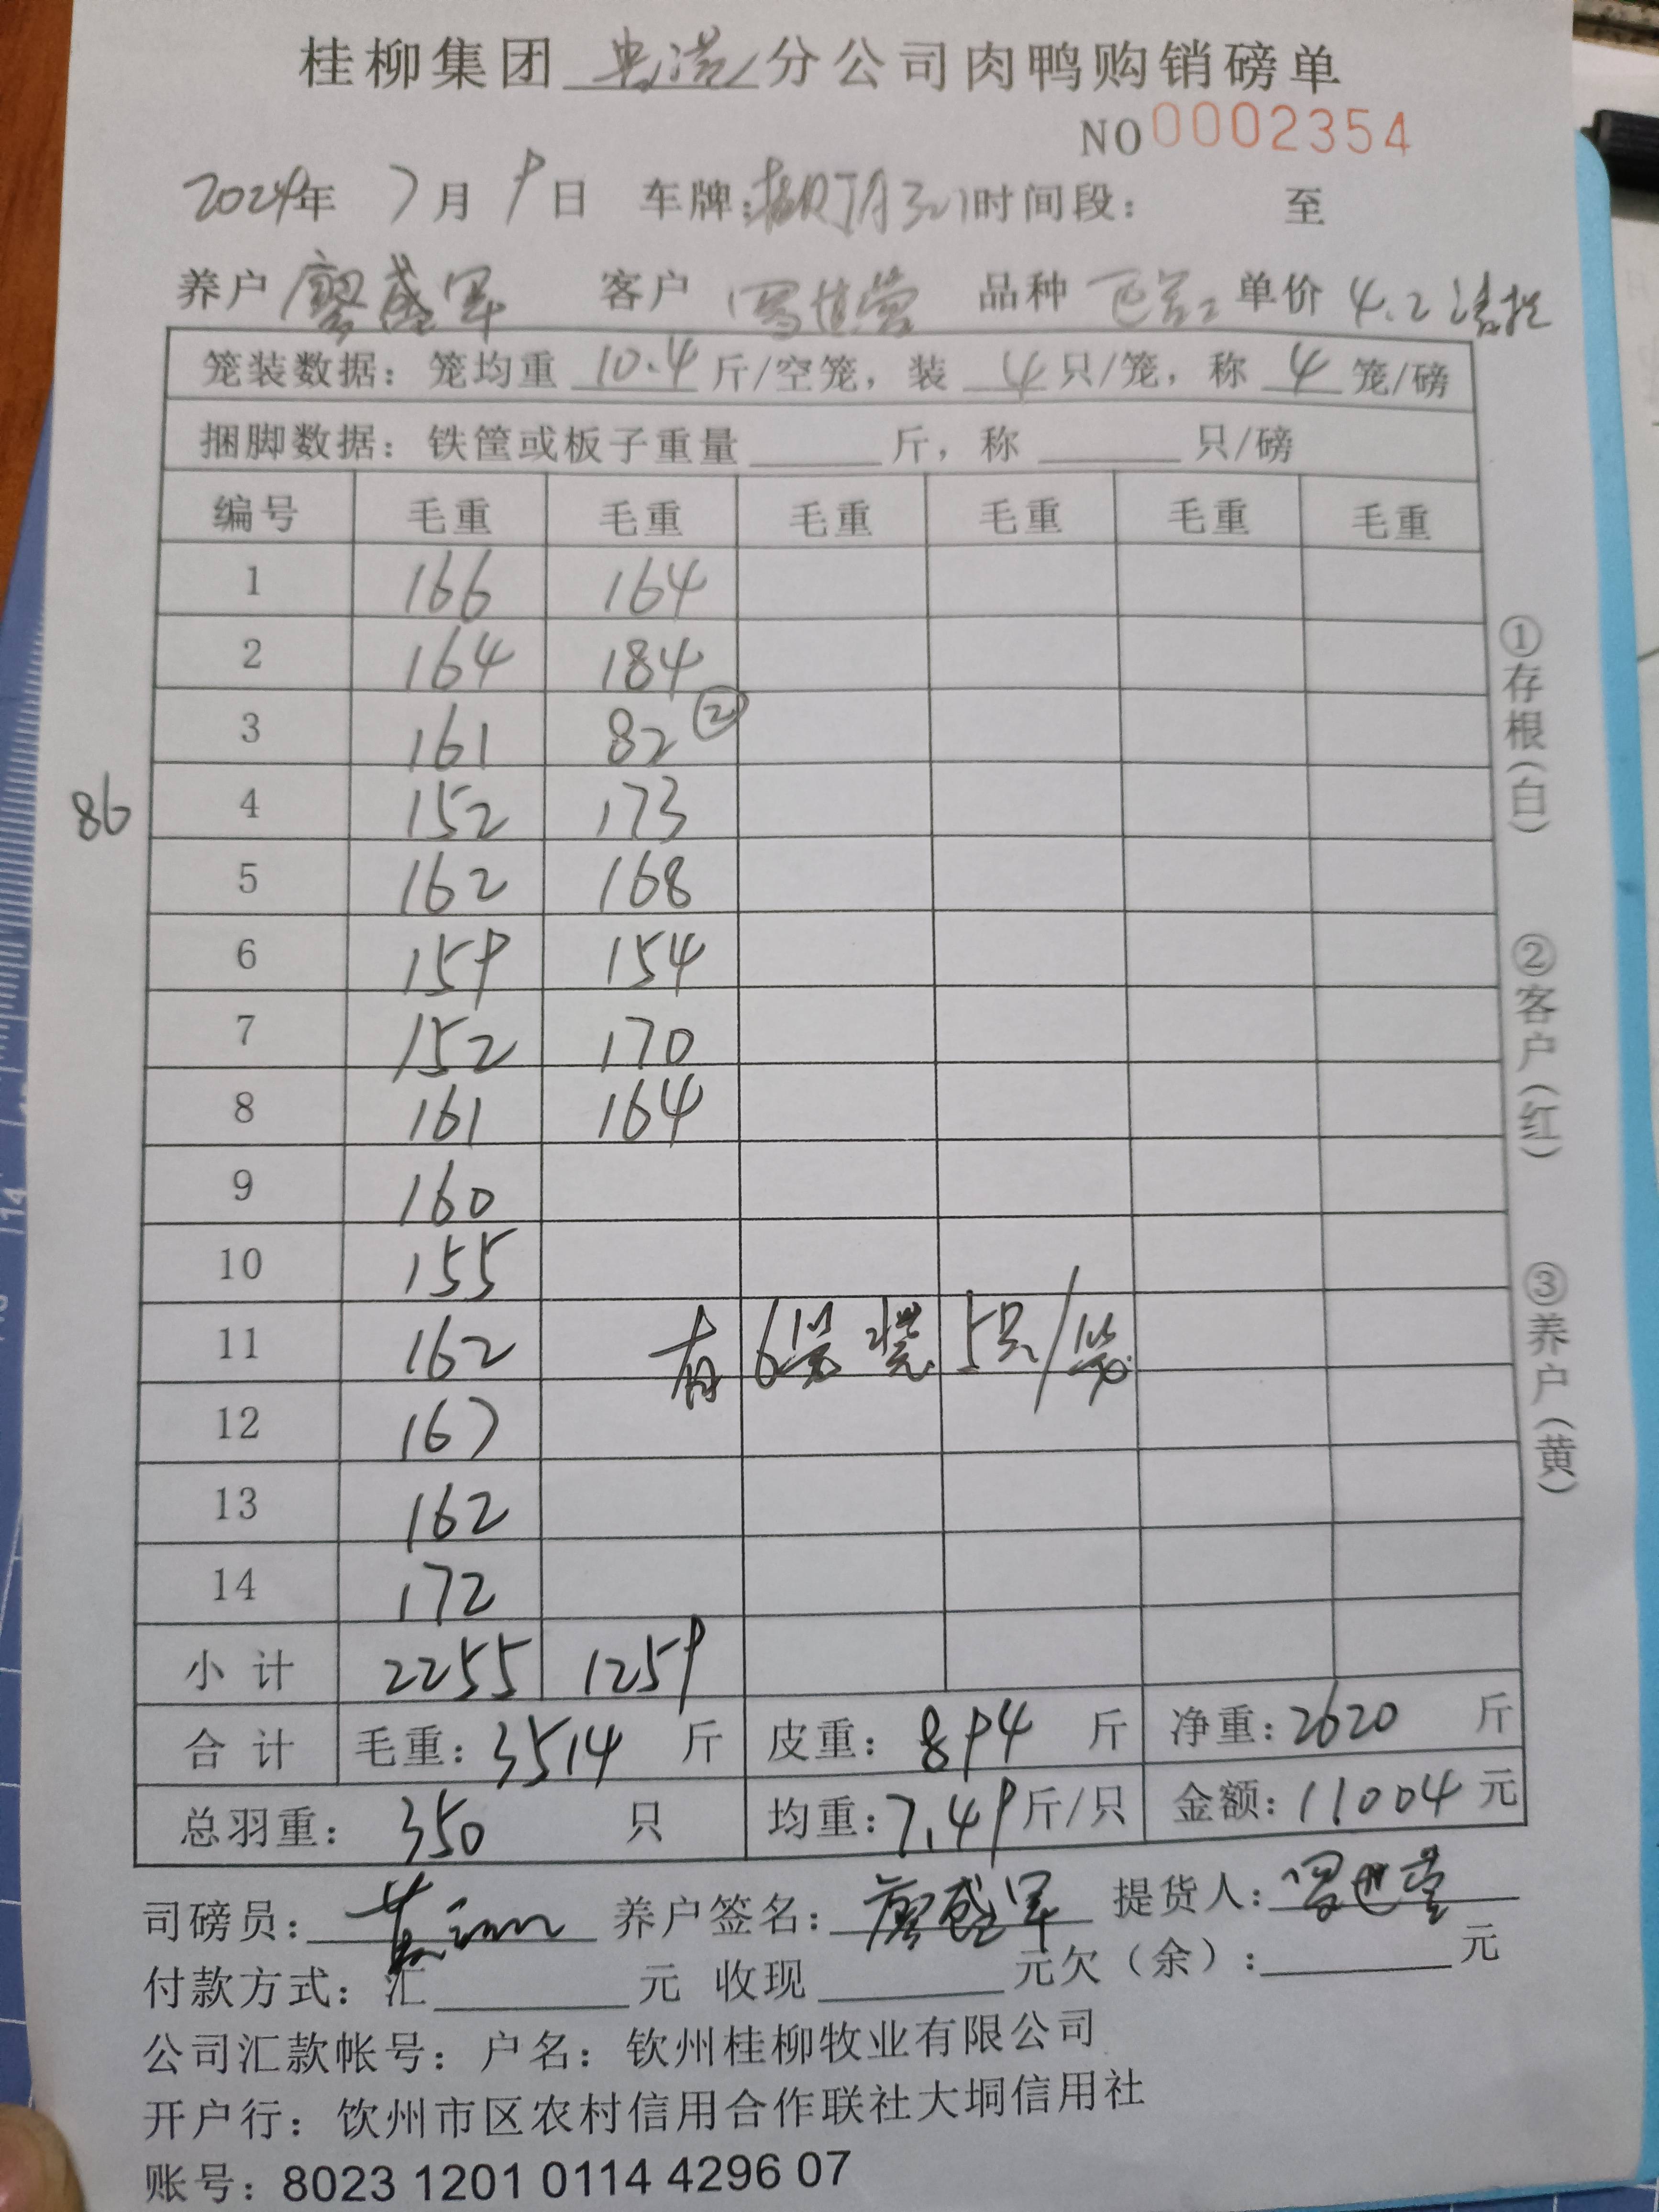 桂柳集团 分公司肉鸭购销磅单
NO 0002354
2024年 7月 9日 车牌: 时间段: 至
养户 廖盛军 客户 品种 单价 4.2
笼装数据: 笼均重 10.4 斤/空笼, 装 4 只/笼, 称 4 笼/磅
捆脚数据: 铁筐或板子重量 斤, 称 只/磅
编号 毛重 毛重 毛重 毛重 毛重 毛重
1 166 164
2 164 184
3 161 82 ②
86
4 152 173
5 162 168
6 159 154
7 152 170
8 161 164
9 160
10 155
11 162 有6笼装5只/笼
12 167
13 162
14 172
小计 2255 1259
合计 毛重: 3514 斤 皮重: 894 斤 净重: 2620 斤
总羽重: 350 只 均重: 7.49 斤/只 金额: 11004 元
司磅员: 养户签名: 廖盛军 提货人:
付款方式: 汇 元 收现 元欠(余): 元
公司汇款帐号: 户名: 钦州桂柳牧业有限公司
开户行: 钦州市区农村信用合作联社大垌信用社
账号: 8023 1201 0114 4296 07
①存根(白)
②客户(红)
③养户(黄)